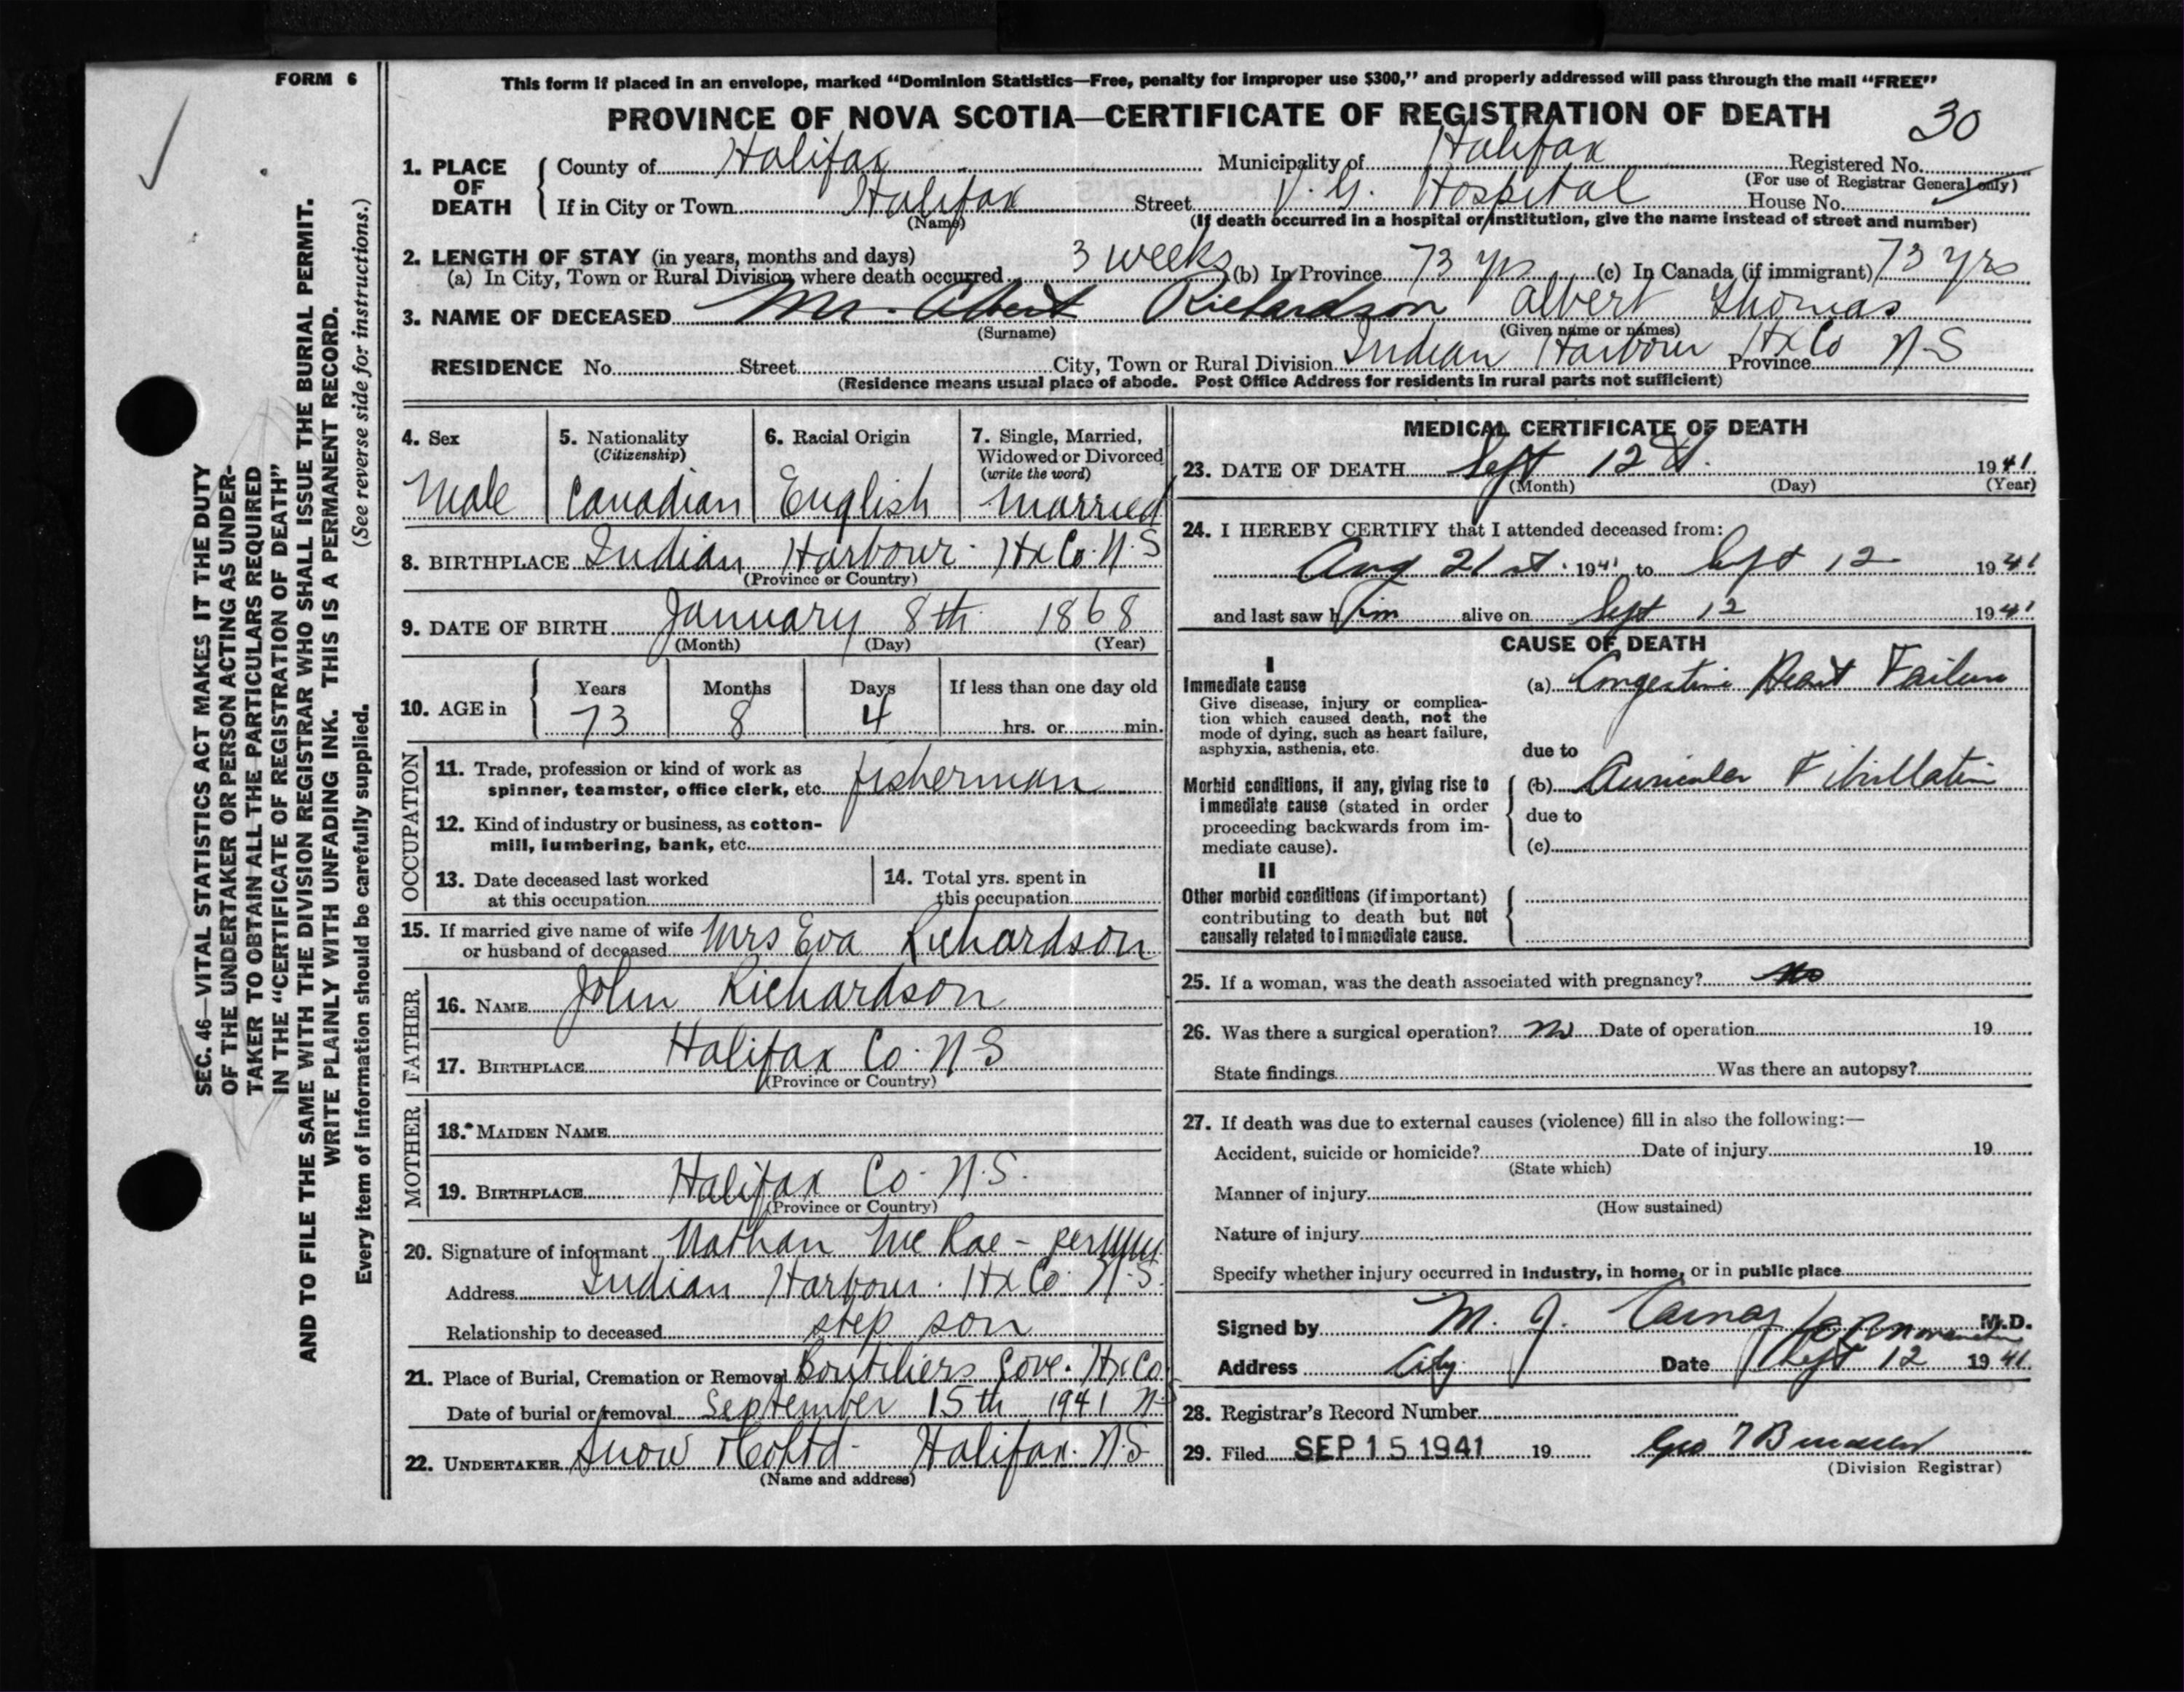 FORM 6
This form if placed in an envelope, marked "Dominion Statistics—Free, penalty for improper use $300," and properly addressed will pass through the mail "FREE"
PROVINCE OF NOVA SCOTIA—CERTIFICATE OF REGISTRATION OF DEATH
30
1. PLACE OF DEATH
County of Halifax Municipality of Halifax Registered No.
(For use of Registrar General only)
If in City or Town Halifax Street V. G. Hospital House No.
(Name) (If death occurred in a hospital or institution, give the name instead of street and number)
2. LENGTH OF STAY (in years, months and days)
(a) In City, Town or Rural Division where death occurred 3 weeks (b) In Province 73 yrs (c) In Canada (if immigrant) 73 yrs
3. NAME OF DECEASED Mr. Albert Richardson Albert Thomas
(Surname) (Given name or names)
RESIDENCE No. Street City, Town or Rural Division Indian Harbour Hx Co Province N-S
(Residence means usual place of abode. Post Office Address for residents in rural parts not sufficient)
4. Sex
Male
5. Nationality
(Citizenship)
Canadian
6. Racial Origin
English
7. Single, Married,
Widowed or Divorced
(write the word)
Married
8. BIRTHPLACE Indian Harbour. Hx Co. N.S
(Province or Country)
9. DATE OF BIRTH January 8th 1868
(Month) (Day) (Year)
10. AGE in
Years Months Days If less than one day old
73 8 4 hrs. or min.
OCCUPATION
11. Trade, profession or kind of work as
spinner, teamster, office clerk, etc. fisherman
12. Kind of industry or business, as cotton-
mill, lumbering, bank, etc.
13. Date deceased last worked
at this occupation
14. Total yrs. spent in
this occupation
15. If married give name of wife
or husband of deceased Mrs Eva Richardson
FATHER
16. NAME John Richardson
17. BIRTHPLACE Halifax Co. N S
(Province or Country)
MOTHER
18. MAIDEN NAME
19. BIRTHPLACE Halifax Co. N.S.
(Province or Country)
20. Signature of informant Nathan McRae - per
Address Indian Harbour. Hx Co. N.S.
Relationship to deceased step son
21. Place of Burial, Cremation or Removal Boutiliers Cove. Hx Co
Date of burial or removal September 15th 1941 N-S
22. UNDERTAKER Snow & Co Ltd - Halifax. N.S
(Name and address)
MEDICAL CERTIFICATE OF DEATH
23. DATE OF DEATH Sept 12th. 1941
(Month) (Day) (Year)
24. I HEREBY CERTIFY that I attended deceased from:
Aug 21st. 1941 to Sept 12 1941
and last saw him alive on Sept 12 1941
CAUSE OF DEATH
I
Immediate cause
Give disease, injury or complica-
tion which caused death, not the
mode of dying, such as heart failure,
asphyxia, asthenia, etc.
(a) Congestive Heart Failure
due to
Morbid conditions, if any, giving rise to
immediate cause (stated in order
proceeding backwards from im-
mediate cause).
(b) Auricular Fibrillation
due to
(c)
II
Other morbid conditions (if important)
contributing to death but not
causally related to immediate cause.
25. If a woman, was the death associated with pregnancy? No
26. Was there a surgical operation? No Date of operation 19
State findings Was there an autopsy?
27. If death was due to external causes (violence) fill in also the following:—
Accident, suicide or homicide? Date of injury 19
(State which)
Manner of injury
(How sustained)
Nature of injury
Specify whether injury occurred in industry, in home, or in public place
Signed by M. J. Carney M.D.
Address City Date Sept 12 1941
28. Registrar's Record Number
29. Filed SEP 15 1941 19 Geo
(Division Registrar)
SEC. 46—VITAL STATISTICS ACT MAKES IT THE DUTY
OF THE UNDERTAKER OR PERSON ACTING AS UNDER-
TAKER TO OBTAIN ALL THE PARTICULARS REQUIRED
IN THE "CERTIFICATE OF REGISTRATION OF DEATH"
AND TO FILE THE SAME WITH THE DIVISION REGISTRAR WHO SHALL ISSUE THE BURIAL PERMIT.
WRITE PLAINLY WITH UNFADING INK. THIS IS A PERMANENT RECORD.
Every item of information should be carefully supplied. (See reverse side for instructions.)